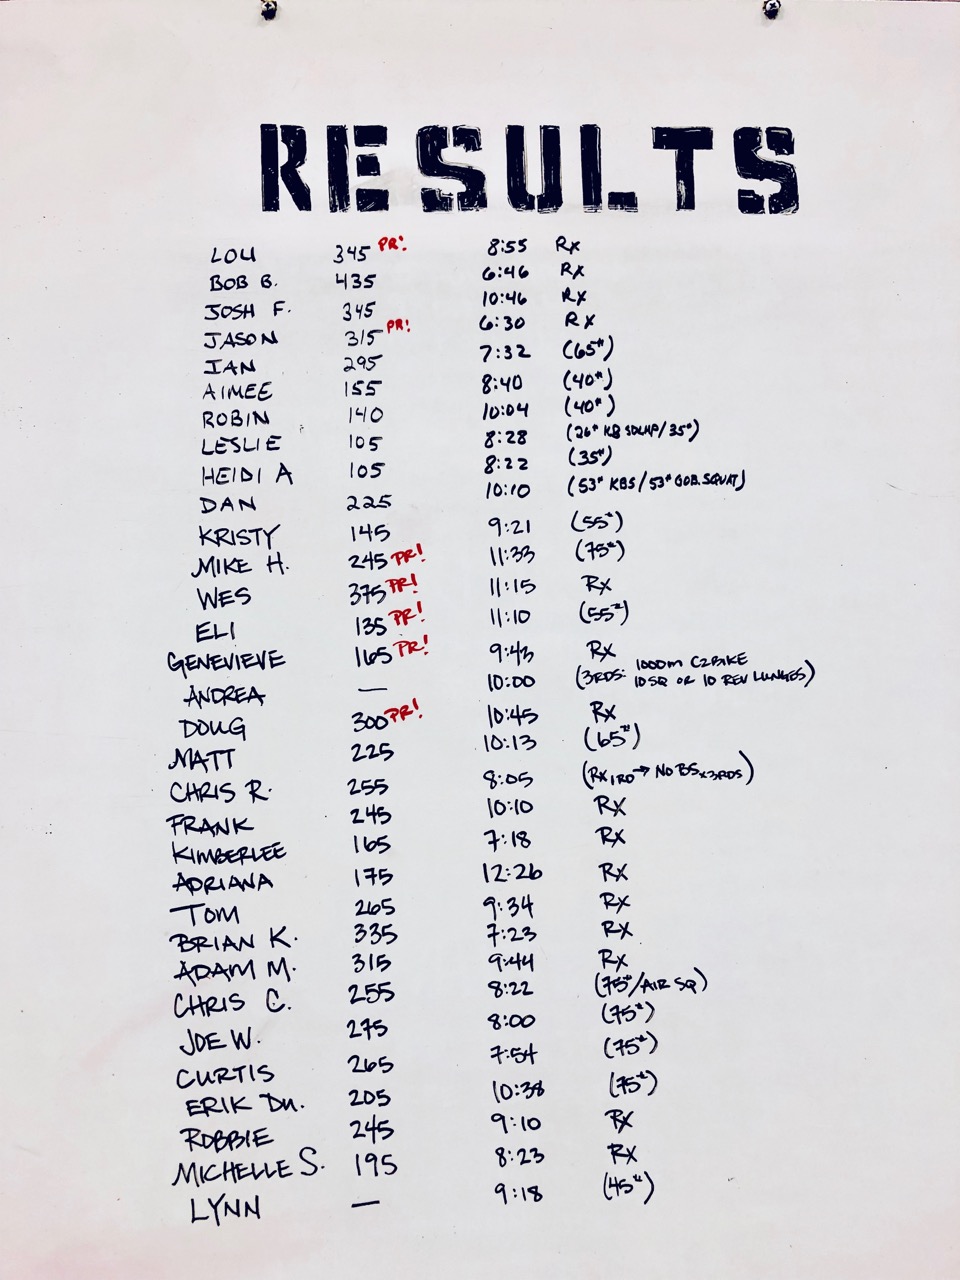 RESULTS
LOU 345 PR! 8:55 Rx
BOB B. 435 6:46 Rx
JOSH F. 345 10:46 Rx
JASON 315 PR! 6:30 Rx
IAN 295 7:32 (65#)
AIMEE 155 8:40 (40#)
ROBIN 140 10:04 (40#)
LESLIE 105 8:28 (26# KB SDLHP/35#)
HEIDI A 105 8:22 (35#)
DAN 225 10:10 (53# KBS/53# GOB.SQUAT)
KRISTY 145 9:21 (55#)
MIKE H. 245 PR! 11:33 (75#)
WES 375 PR! 11:15 Rx
ELI 135 PR! 11:10 (55#)
GENEVIEVE 165 PR! 9:43 Rx
ANDREA — 10:00 (3RDS: 1000m C2BIKE
10 SQ OR 10 REV LUNGES)
DOUG 300 PR! 10:45 Rx
MATT 225 10:13 (65#)
CHRIS R. 255 8:05 (Rx 1RD → NO BS x3RDS)
FRANK 245 10:10 Rx
KIMBERLEE 165 7:18 Rx
ADRIANA 175 12:26 Rx
TOM 265 9:34 Rx
BRIAN K. 335 7:23 Rx
ADAM M. 315 9:44 Rx
CHRIS C. 255 8:22 (75#/AIR SQ)
JOE W. 275 8:00 (75#)
CURTIS 265 7:54 (75#)
ERIK DU. 205 10:38 (75#)
ROBBIE 245 9:10 Rx
MICHELLE S. 195 8:23 Rx
LYNN — 9:18 (45#)